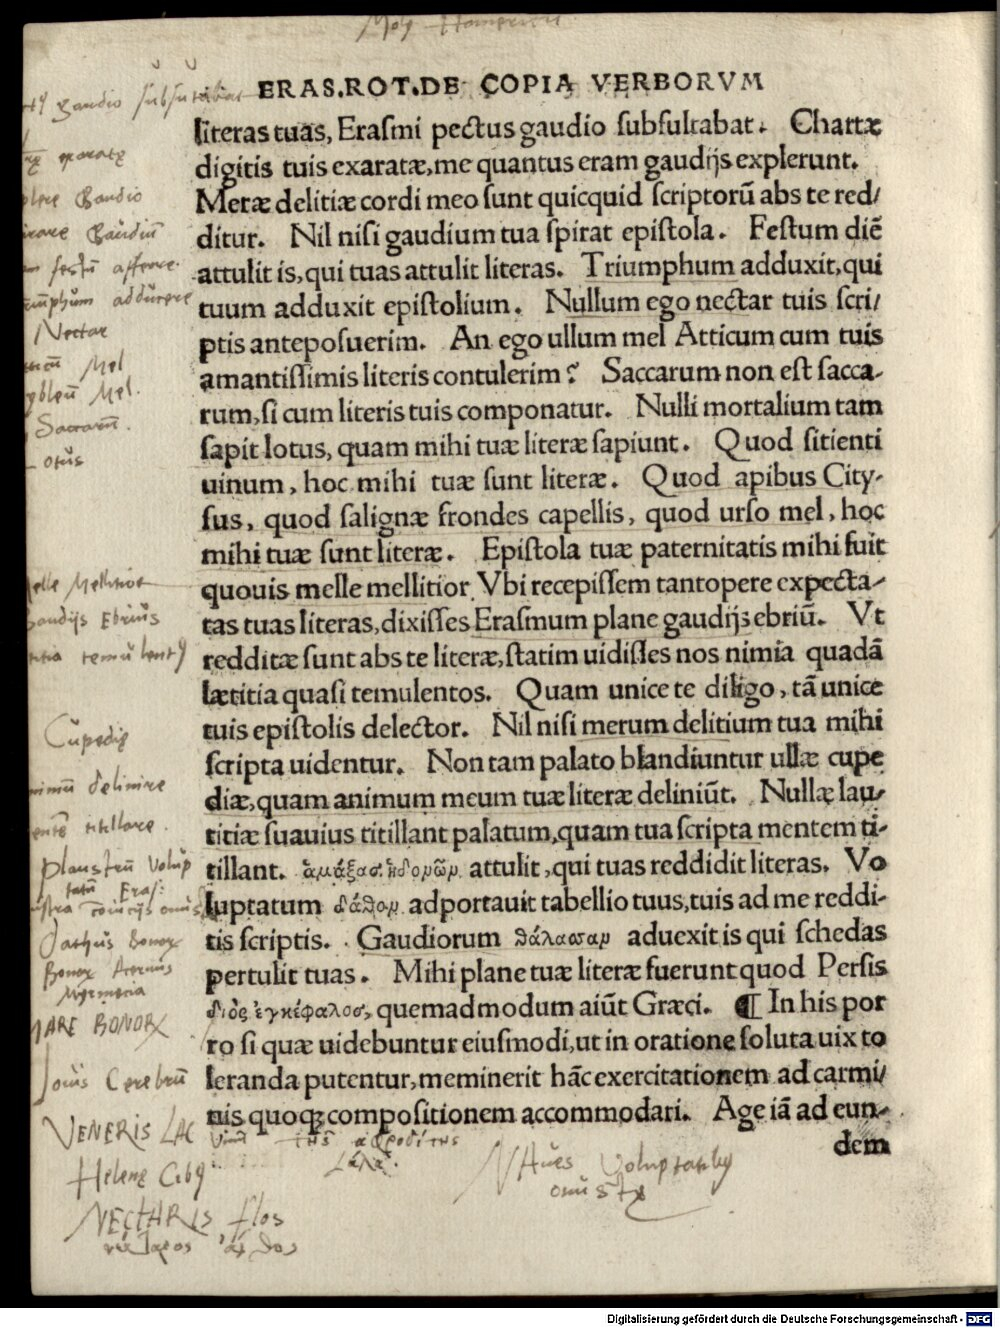 ERAS.ROT.DE COPIA VERBORVM
literas tuas, Erasmi pectus gaudio subsultabat. Chartæ
digitis tuis exaratæ, me quantus eram gaudijs explerunt.
Meræ delitiæ cordi meo sunt quicquid scriptorū abs te red/
ditur. Nil nisi gaudium tua spirat epistola. Festum diē
attulit is, qui tuas attulit literas. Triumphum adduxit, qui
tuum adduxit epistolium. Nullum ego nectar tuis scri/
ptis anteposuerim. An ego ullum mel Atticum cum tuis
amantissimis literis contulerim? Saccarum non est sacca-
rum, si cum literis tuis componatur. Nulli mortalium tam
sapit lotus, quam mihi tuæ literæ sapiunt. Quod sitienti
uinum, hoc mihi tuæ sunt literæ. Quod apibus City-
sus, quod salignæ frondes capellis, quod urso mel, hoc
mihi tuæ sunt literæ. Epistola tuæ paternitatis mihi fuit
quouis melle mellitior. Vbi recepissem tantopere expecta-
tas tuas literas, dixisses Erasmum plane gaudijs ebriū. Vt
redditæ sunt abs te literæ, statim uidisses nos nimia quadā
lætitia quasi temulentos. Quam unice te diligo, tā unice
tuis epistolis delector. Nil nisi merum delitium tua mihi
scripta uidentur. Non tam palato blandiuntur ullæ cupe
diæ, quam animum meum tuæ literæ deliniūt. Nullæ lau/
titiæ suauius titillant palatum, quam tua scripta mentem ti-
tillant. ἁμάξας ἡδονῶν attulit, qui tuas reddidit literas. Vo
luptatum δάθον adportauit tabellio tuus, tuis ad me reddi-
tis scriptis. Gaudiorum θάλασσαν aduexit is qui schedas
pertulit tuas. Mihi plane tuæ literæ fuerunt quod Persis
διὸς ἐγκέφαλος, quemadmodum aiūt Græci. ¶ In his por
ro si quæ uidebuntur eiusmodi, ut in oratione soluta uix to
leranda putentur, meminerit hāc exercitationem ad carmi/
nis quoqꝫ compositionem accommodari. Age iā ad eun-
dem
gaudio subsultabat
Nectar
Mel
Mel.
Cupediæ
titillare.
plaustrū Volup
tatū Eras:
MARE BONORꝜ
Jouis Cerebrū
VENERIS LAC
Helenę
NECTARIS flos
Naues Voluptatibꝰ